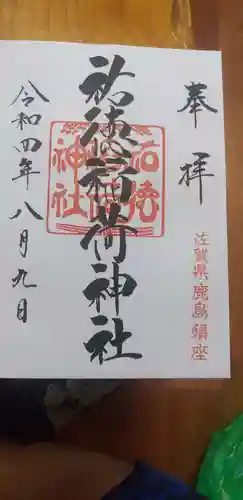 奉拝
佐賀県鹿島鎮座
祐徳稲荷神社
祐徳
神社
令和四年八月九日